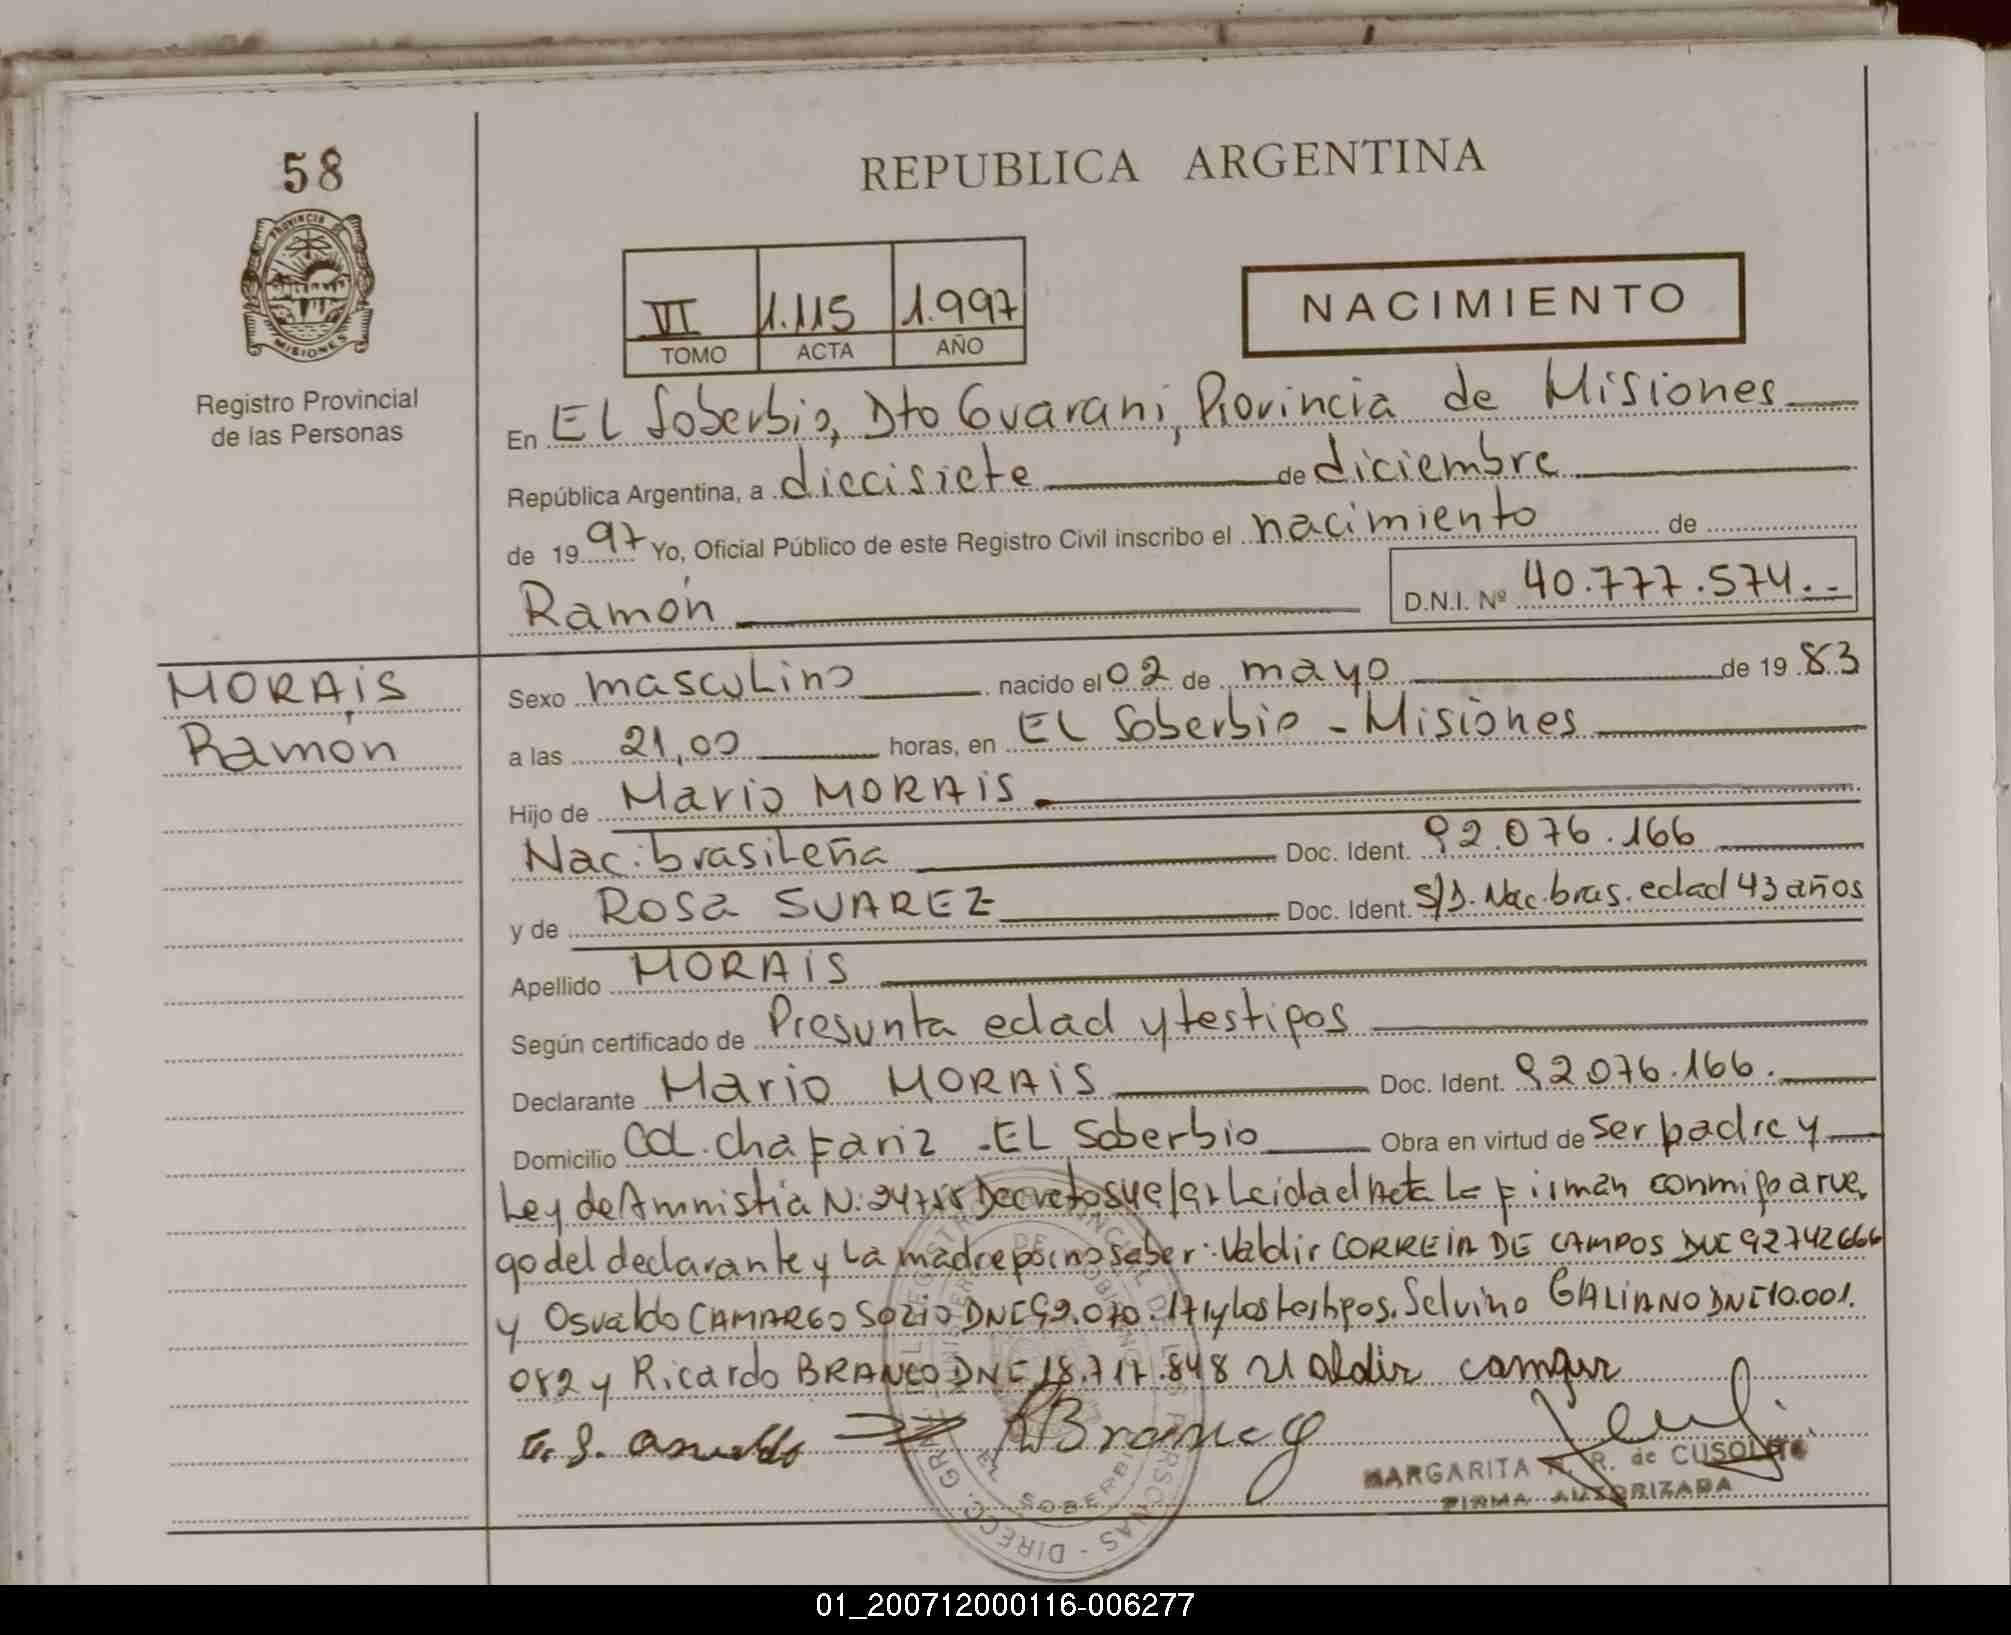 58
PROVINCIA DE
MISIONES
Registro Provincial
de las Personas
REPUBLICA ARGENTINA
VI 1.115 1.997
TOMO ACTA AÑO
NACIMIENTO
En El Soberbio, Dto Guarani, Provincia de Misiones
República Argentina, a diecisiete de diciembre
de 19 97 Yo, Oficial Público de este Registro Civil inscribo el nacimiento de
Ramón
D.N.I. Nº 40.777.574.-
MORAiS
Ramón
Sexo masculino nacido el 02 de mayo de 19 83
a las 21,00 horas, en El Soberbio - Misiones
Hijo de Mario MORAiS
Nac. brasileña Doc. Ident. 92.076.166
y de Rosa SUAREZ Doc. Ident. S/D. Nac. bras. edad 43 años
Apellido MORAiS
Según certificado de Presunta edad y testigos
Declarante Mario MORAiS Doc. Ident. 92.076.166.
Domicilio Col. chafariz - El Soberbio Obra en virtud de ser padre y
Ley de Amnistia N. 24755 Leida el Acta La firman conmigo a rue
go del declarante y La madre por no saber: Valdir CORREiA DE CAMPOS 92742666
y Osvaldo CAMARGO DNI 92.070.171 y los testigos. Selvino GALiANO DNI 10.001.
082 y Ricardo BRANCO DNI 18.717.848 Valdir campos
MARGARITA R. de CUSOLITO
FIRMA AUTORIZADA
EL SOBERBIO
01_200712000116-006277